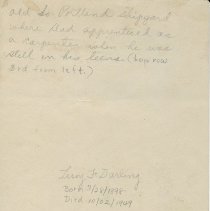 old So Portland Shipyard
where Dad apprenticed as
a carpenter when he was
still in his teens. (top row
3rd from left.)
Leroy F. Darling
Born 7/28/1898
Died 10/02/1949